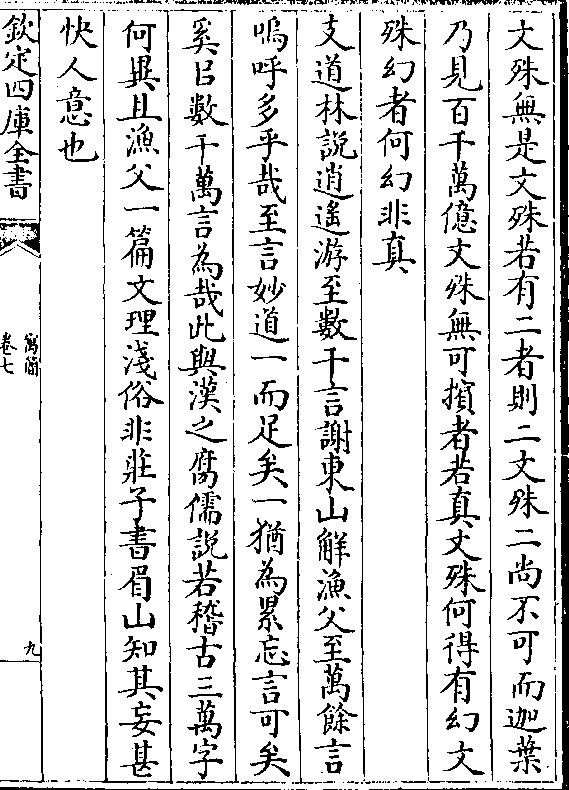 文殊無是文殊若有二者則二文殊二尚不可而迦葉
乃見百千萬億文殊無可擯者若真文殊何得有幻文
殊幻者何幻非真
支道林說逍遙游至數千言謝東山解漁父至萬餘言
嗚呼多乎哉至言妙道一而足矣一猶為累忘言可矣
奚以數千萬言為哉此與漢之腐儒說若稽古三萬字
何異且漁父一篇文理淺俗非莊子書眉山知其妄甚
快人意也
欽定四庫全書
寓簡
卷七
九